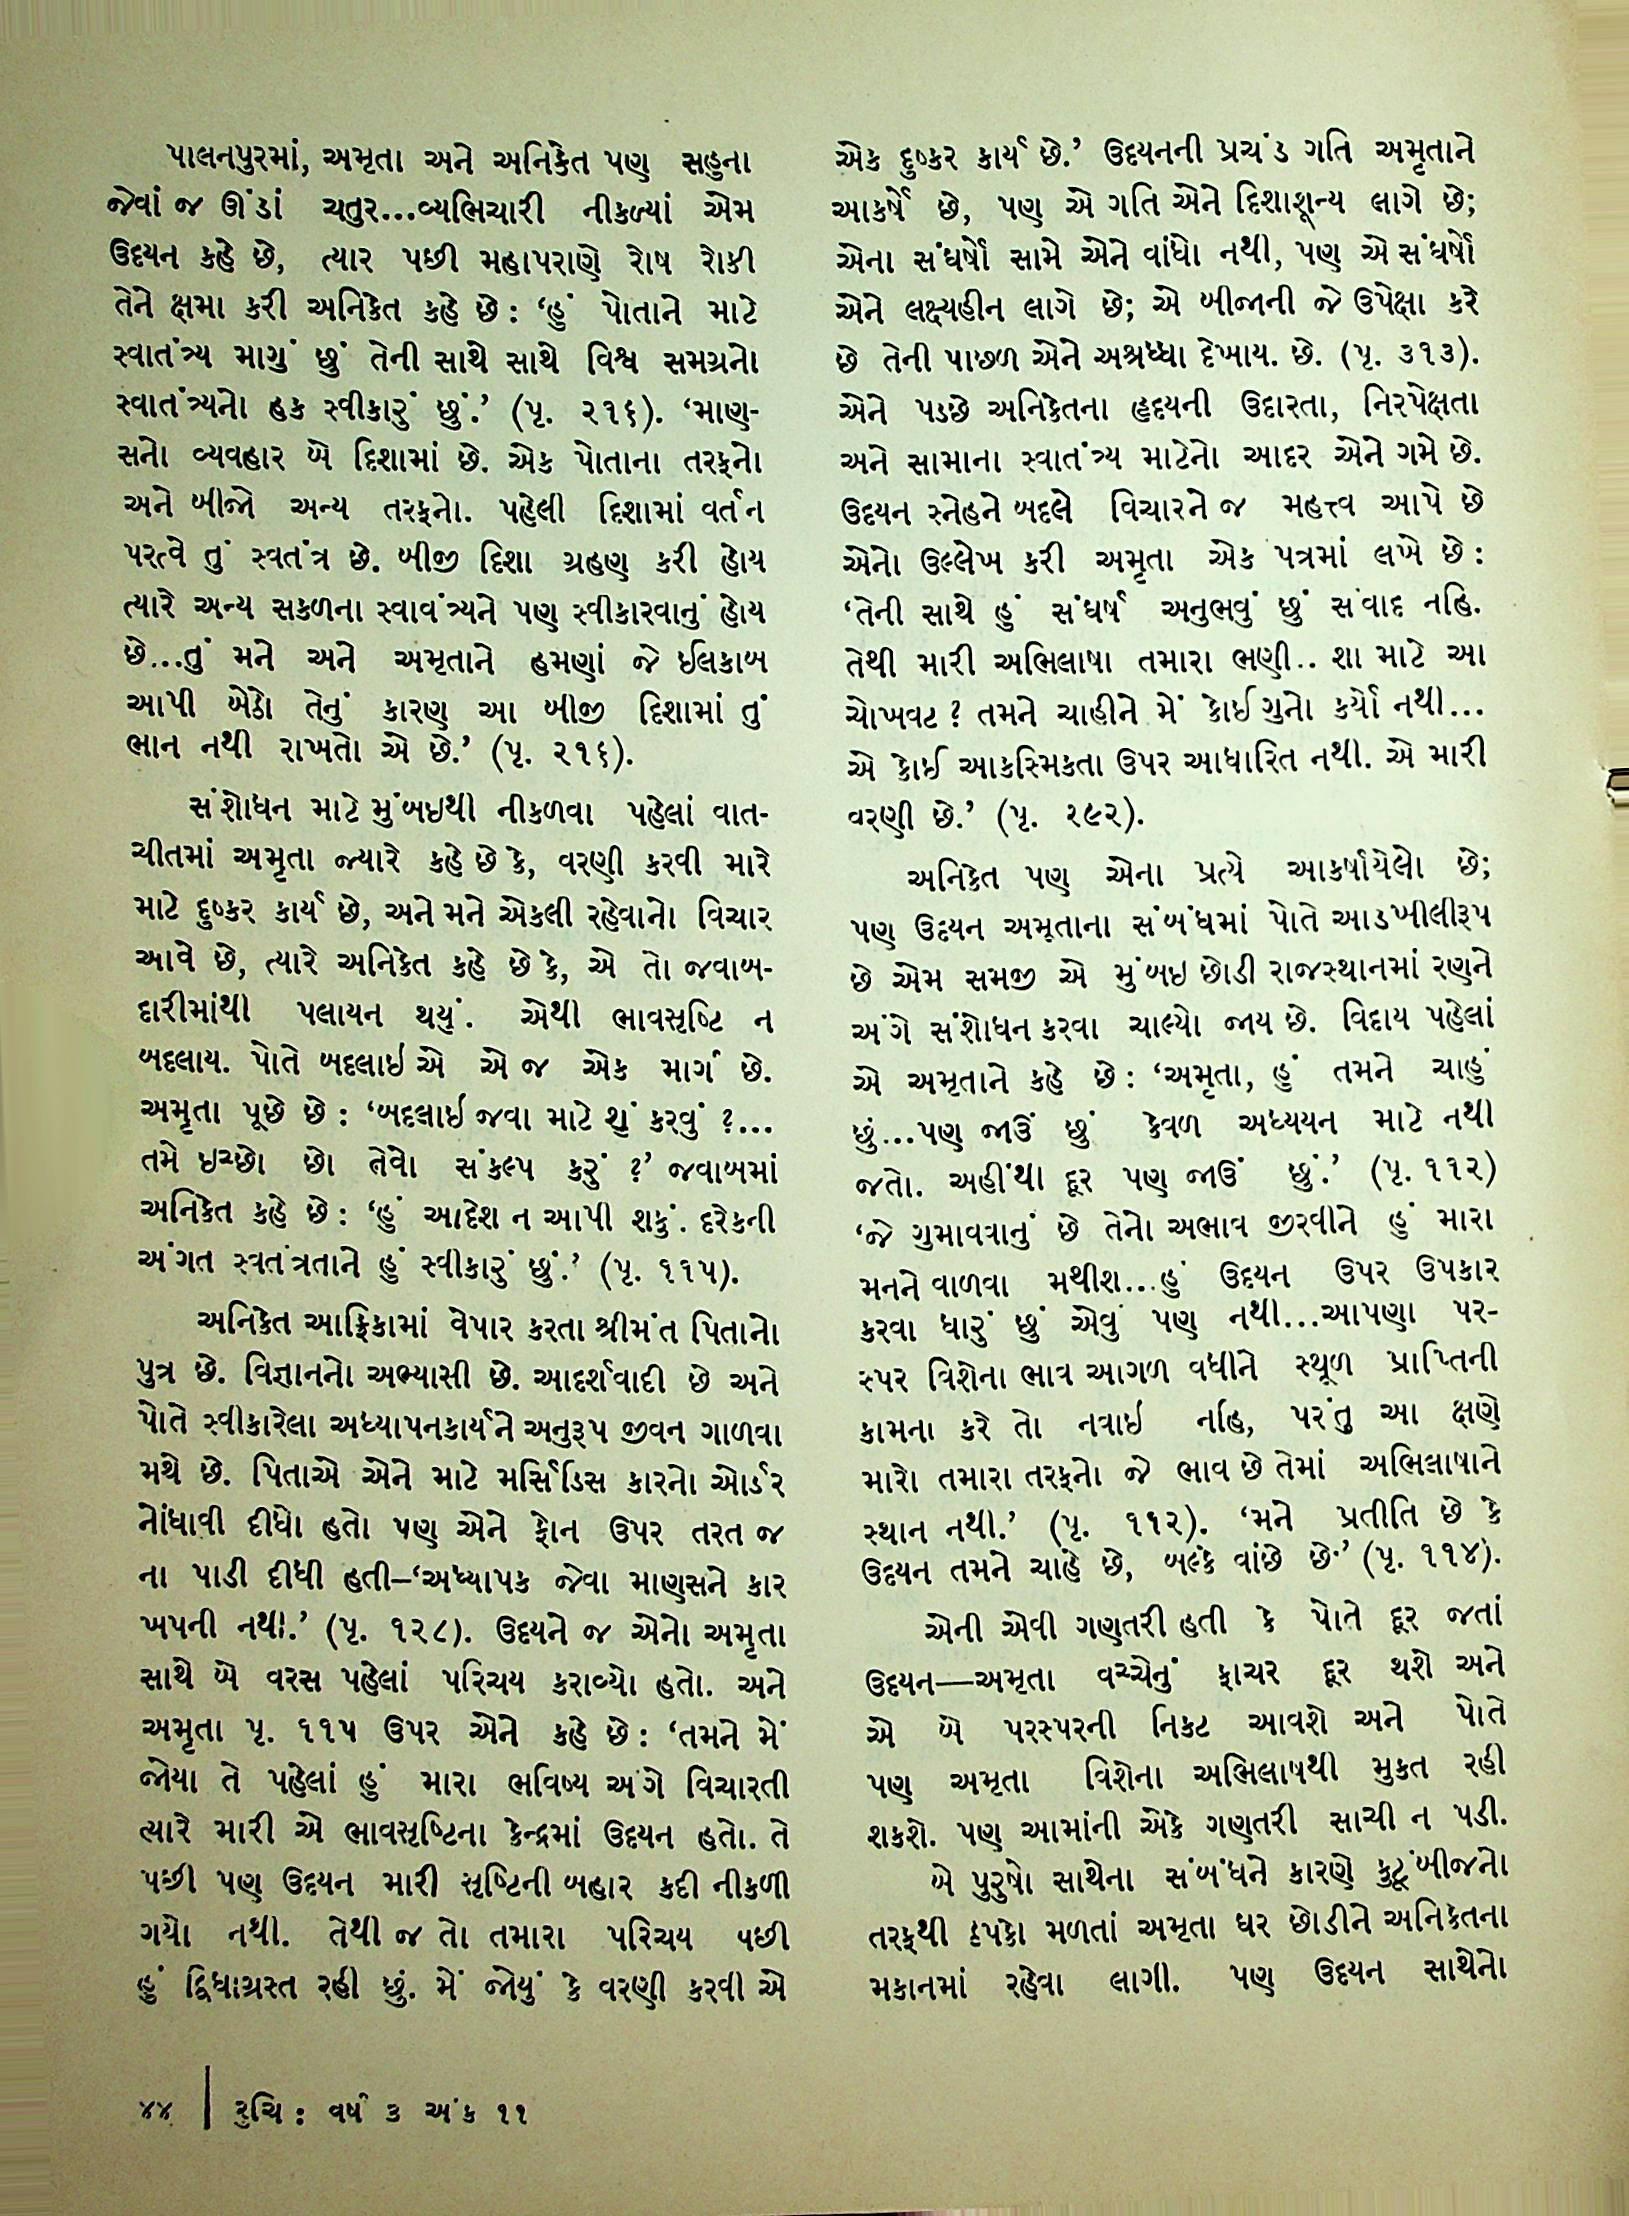 પાલનપુરમાં, અમૃતા અને અનિકેત પણ સહુના
જેવાં જ ઊંડાં ચતુર...વ્યભિચારી નીકળ્યાં એમ
ઉદયન કહે છે, ત્યાર પછી મહાપરાણે રોષ રોકી
તેને ક્ષમા કરી અનિકેત કહે છે : ‘હું પોતાને માટે
સ્વાતંત્ર્ય માગું છું તેની સાથે સાથે વિશ્વ સમગ્રનો
સ્વાતંત્ર્યનો હક સ્વીકારું છું.’ (પૃ. ૨૧૬). ‘માણ-
સનો વ્યવહાર બે દિશામાં છે. એક પોતાના તરફનો
અને બીજો અન્ય તરફનો. પહેલી દિશામાં વર્તન
પરત્વે તું સ્વતંત્ર છે. બીજી દિશા ગ્રહણ કરી હોય
ત્યારે અન્ય સકળના સ્વાવંત્ર્યને પણ સ્વીકારવાનું હોય
છે...તું મને અને અમૃતાને હમણાં જે ઈલકાબ
આપી બેઠો તેનું કારણ આ બીજી દિશામાં તું
ભાન નથી રાખતો એ છે.’ (પૃ. ૨૧૬).
સંશોધન માટે મુંબઇથી નીકળવા પહેલાં વાત-
ચીતમાં અમૃતા જ્યારે કહે છે કે, વરણી કરવી મારે
માટે દુષ્કર કાર્ય છે, અને મને એકલી રહેવાનો વિચાર
આવે છે, ત્યારે અનિકેત કહે છે કે, એ તો જવાબ-
દારીમાંથી પલાયન થયું. એથી ભાવસૃષ્ટિ ન
બદલાય. પોતે બદલાઇ એ એ જ એક માર્ગ છે.
અમૃતા પૂછે છે : ‘બદલાઇ જવા માટે શું કરવું ?...
તમે ઇચ્છો છો તેવો સંકલ્પ કરું ?’ જવાબમાં
અનિકેત કહે છે : ‘હું આદેશ ન આપી શકું. દરેકની
અંગત સ્વતંત્રતાને હું સ્વીકારું છું.’ (પૃ. ૧૧૫).
અનિકેત આફ્રિકામાં વેપાર કરતા શ્રીમંત પિતાનો
પુત્ર છે. વિજ્ઞાનનો અભ્યાસી છે. આદર્શવાદી છે અને
પોતે સ્વીકારેલા અધ્યાપનકાર્યને અનુરૂપ જીવન ગાળવા
મથે છે. પિતાએ એને માટે મર્સિડિસ કારનો ઓર્ડર
નોંધાવી દીધો હતો પણ એને ફોન ઉપર તરત જ
ના પાડી દીધી હતી–‘અધ્યાપક જેવા માણસને કાર
ખપની નથી.’ (પૃ. ૧૨૮). ઉદયને જ એનો અમૃતા
સાથે બે વરસ પહેલાં પરિચય કરાવ્યો હતો. અને
અમૃતા પૃ. ૧૧૫ ઉપર એને કહે છે : ‘તમને મેં
જોયા તે પહેલાં હું મારા ભવિષ્ય અંગે વિચારતી
ત્યારે મારી એ ભાવસૃષ્ટિના કેન્દ્રમાં ઉદયન હતો. તે
પછી પણ ઉદયન મારી સૃષ્ટિની બહાર કદી નીકળી
ગયો નથી. તેથી જ તો તમારા પરિચય પછી
હું દ્વિધાગ્રસ્ત રહી છું. મેં જોયું કે વરણી કરવી એ
એક દુષ્કર કાર્ય છે.’ ઉદયનની પ્રચંડ ગતિ અમૃતાને
આકર્ષે છે, પણ એ ગતિ એને દિશાશૂન્ય લાગે છે;
એના સંઘર્ષો સામે એને વાંધો નથી, પણ એ સંઘર્ષો
એને લક્ષ્યહીન લાગે છે; એ બીજાની જે ઉપેક્ષા કરે
છે તેની પાછળ એને અશ્રધ્ધા દેખાય. છે. (પૃ. ૩૧૩).
એને પડછે અનિકેતના હૃદયની ઉદારતા, નિરપેક્ષતા
અને સામાના સ્વાતંત્ર્ય માટેનો આદર એને ગમે છે.
ઉદયન સ્નેહને બદલે વિચારને જ મહત્ત્વ આપે છે
એનો ઉલ્લેખ કરી અમૃતા એક પત્રમાં લખે છે :
‘તેની સાથે હું સંઘર્ષ અનુભવું છું સંવાદ નહિ.
તેથી મારી અભિલાષા તમારા ભણી.. શા માટે આ
ચોખવટ ? તમને ચાહીને મેં કોઈ ગુનો કર્યો નથી...
એ કોઈ આકસ્મિકતા ઉપર આધારિત નથી. એ મારી
વરણી છે.’ (પૃ. ૨૯૨).
અનિકેત પણ એના પ્રત્યે આકર્ષાયેલો છે;
પણ ઉદયન અમૃતાના સંબંધમાં પોતે આડખીલીરૂપ
છે એમ સમજી એ મુંબઇ છોડી રાજસ્થાનમાં રણને
અંગે સંશોધન કરવા ચાલ્યો જાય છે. વિદાય પહેલાં
એ અમૃતાને કહે છે : ‘અમૃતા, હું તમને ચાહું
છું...પણ જાઉં છું કેવળ અધ્યયન માટે નથી
જતો. અહીંથી દૂર પણ જાઉં છું.’ (પૃ. ૧૧૨)
‘જે ગુમાવવાનું છે તેનો અભાવ જીરવીને હું મારા
મનને વાળવા મથીશ...હું ઉદયન ઉપર ઉપકાર
કરવા ધારું છું એવું પણ નથી...આપણા પર-
સ્પર વિશેના ભાવ આગળ વધીને સ્થૂળ પ્રાપ્તિની
કામના કરે તો નવાઇ નહિ, પરંતુ આ ક્ષણે
મારો તમારા તરફનો જે ભાવ છે તેમાં અભિલાષાને
સ્થાન નથી.’ (પૃ. ૧૧૨). ‘મને પ્રતીતિ છે કે
ઉદયન તમને ચાહે છે, બલ્કે વાંછે છે.’ (પૃ. ૧૧૪).
એની એવી ગણતરી હતી કે પોતે દૂર જતાં
ઉદયન—અમૃતા વચ્ચેનું ફાચર દૂર થશે અને
એ બે પરસ્પરની નિકટ આવશે અને પોતે
પણ અમૃતા વિશેના અભિલાષથી મુકત રહી
શકશે. પણ આમાંની એકે ગણતરી સાચી ન પડી.
બે પુરુષો સાથેના સંબંધને કારણે કુટૂંબીજનો
તરફથી ઠપકો મળતાં અમૃતા ઘર છોડીને અનિકેતના
મકાનમાં રહેવા લાગી. પણ ઉદયન સાથેનો
૪૪ | રુચિ : વર્ષ ૩ અંક ૧૧